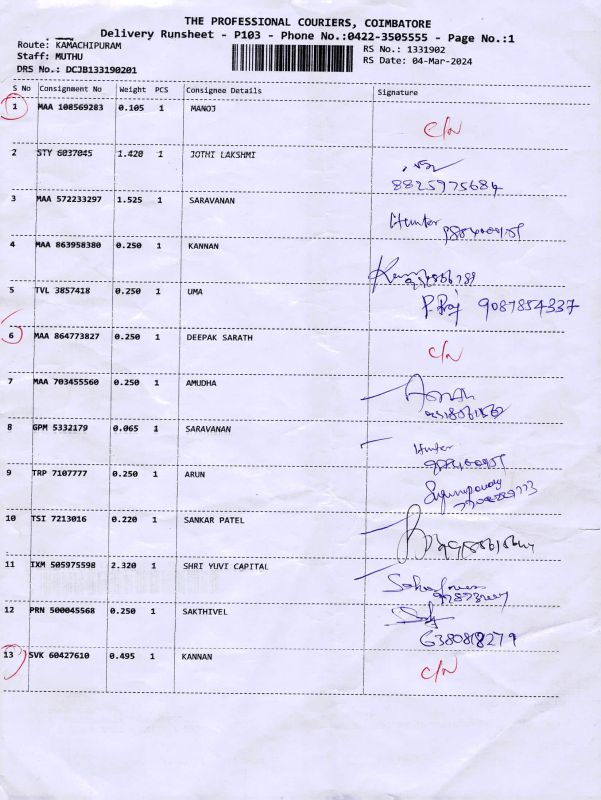 THE PROFESSIONAL COURIERS, COIMBATORE
Delivery Runsheet - P103 - Phone No.:0422-3505555 - Page No.:1
Route: KAMACHIPURAM RS No.: 1331902
Staff: MUTHU RS Date: 04-Mar-2024
DRS No.: DCJB133190201
S No Consignment No Weight PCS Consignee Details Signature
1 MAA 108569283 0.105 1 MANOJ C/N
2 STY 6037045 1.420 1 JOTHI LAKSHMI
8825975684
3 MAA 572233297 1.525 1 SARAVANAN Hunter
4 MAA 863958380 0.250 1 KANNAN
5 TVL 3857418 0.250 1 UMA 9087854337
6 MAA 864773827 0.250 1 DEEPAK SARATH C/N
7 MAA 703455560 0.250 1 AMUDHA
8 GPM 5332179 0.065 1 SARAVANAN Hunter
9 TRP 7107777 0.250 1 ARUN
10 TSI 7213016 0.220 1 SANKAR PATEL
11 IXM 505975598 2.320 1 SHRI YUVI CAPITAL
12 PRN 500045568 0.250 1 SAKTHIVEL
13 SVK 60427610 0.495 1 KANNAN C/N